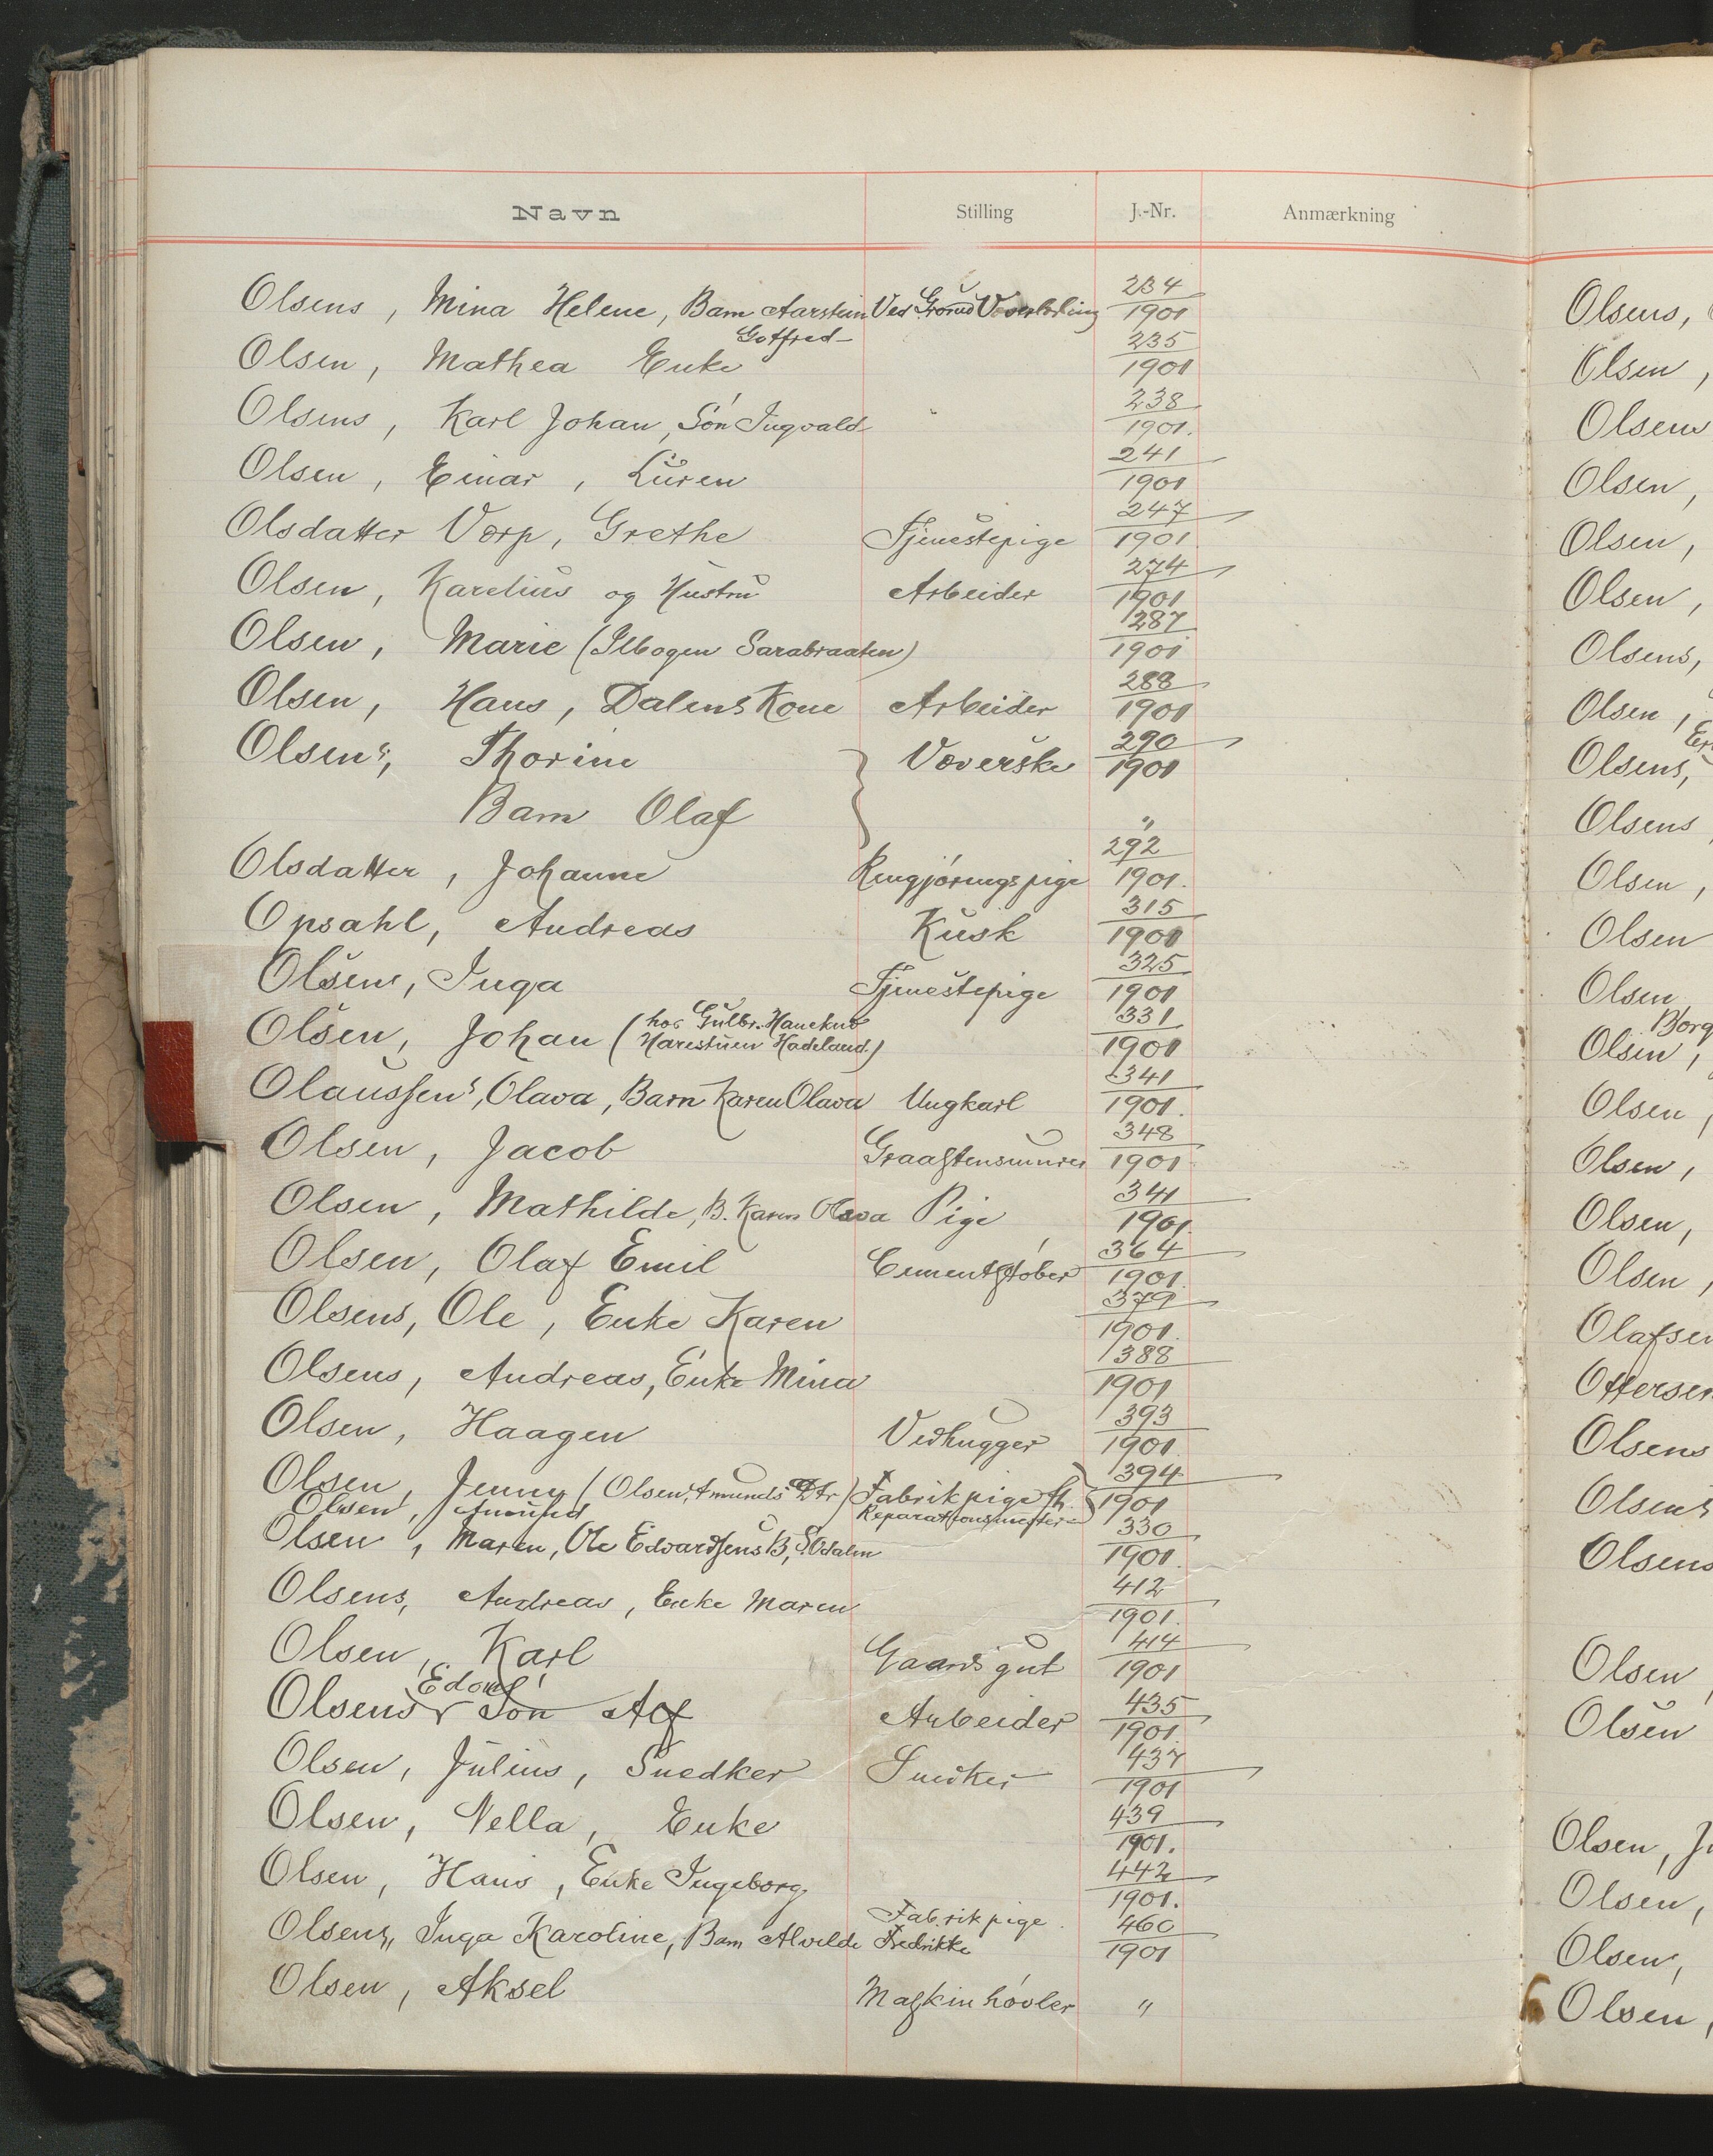 Navn Stilling J.-Nr. Anmærkning
Olsens, Mina Helene, Barn Aarstein Ved Grorud 234
1901
Gotfred
Olsen, Mathea Enke 235
1901
Olsens, Karl Johan, Søn Ingvald 238
1901.
Olsen, Einar, Luren 241
1901
Olsdatter Vorp, Grethe Tjenestepige 247
1901
Olsen, Karelius og Hustru Arbeider 274
1901
Olsen, Marie (Ilbogen Sarabraaten) 287
1901
Olsen, Hans, Dalens Kone Arbeider 288
1901
Olsens, Thorine Væverske 290
1901
Barn Olaf "
Olsdatter, Johanne Rengjøringspige 292
1901.
Opsahl, Andreas Kusk 315
1901
Olsen, Inga Tjenestepige 325
1901
Olsen, Johan (hos Gulbr.
Harestuen Hadeland.) 331
1901
Olaussens, Olava, Barn Karen Olava Ungkarl 341
1901.
Olsen, Jacob Graastensmurer 348
1901
Olsen, Mathilde, B. Karen Olava Pige 341
1901.
Olsen, Olaf Emil Cementstøber 364
1901
Olsens, Ole, Enke Karen 379
1901.
Olsens, Andreas, Enke Mina 388
1901
Olsen, Haagen Vedhugger 393
1901
Olsen, Jenny (Olsen, Amunds Dtr) Fabrikpige fh. 394
1901
Olsen, Amund Reparationsmester
Olsen, Maren, Ole Edvardsens B, S. Odalen 330
1901.
Olsens, Andreas, Enke Maren 412
1901.
Olsen, Karl Gaardsgut 414
1901
Olsens Søn Alf Arbeider 435
1901
Olsen, Julius, Snedker Snedker 437
1901
Olsen, Nella, Enke 439
1901.
Olsen, Hans, Enke Ingeborg 442
1901.
Fabrikpige
Olsens, Inga Karoline, Barn Alvilde Fredrikke 460
1901
Olsen, Aksel Maskinhøvler "
Olsens,
Olsen,
Olsens
Olsen,
Olsen,
Olsen,
Olsens,
Olsen,
Olsens,
Olsens,
Olsen,
Olsen
Olsen
Olsen,
Olsen,
Olsen,
Olsen,
Olsen,
Olafsen
Ottersen
Olsens
Olsens
Olsens
Olsen
Olsen
Olsen,
Olsen,
Olsen,
Olsen,